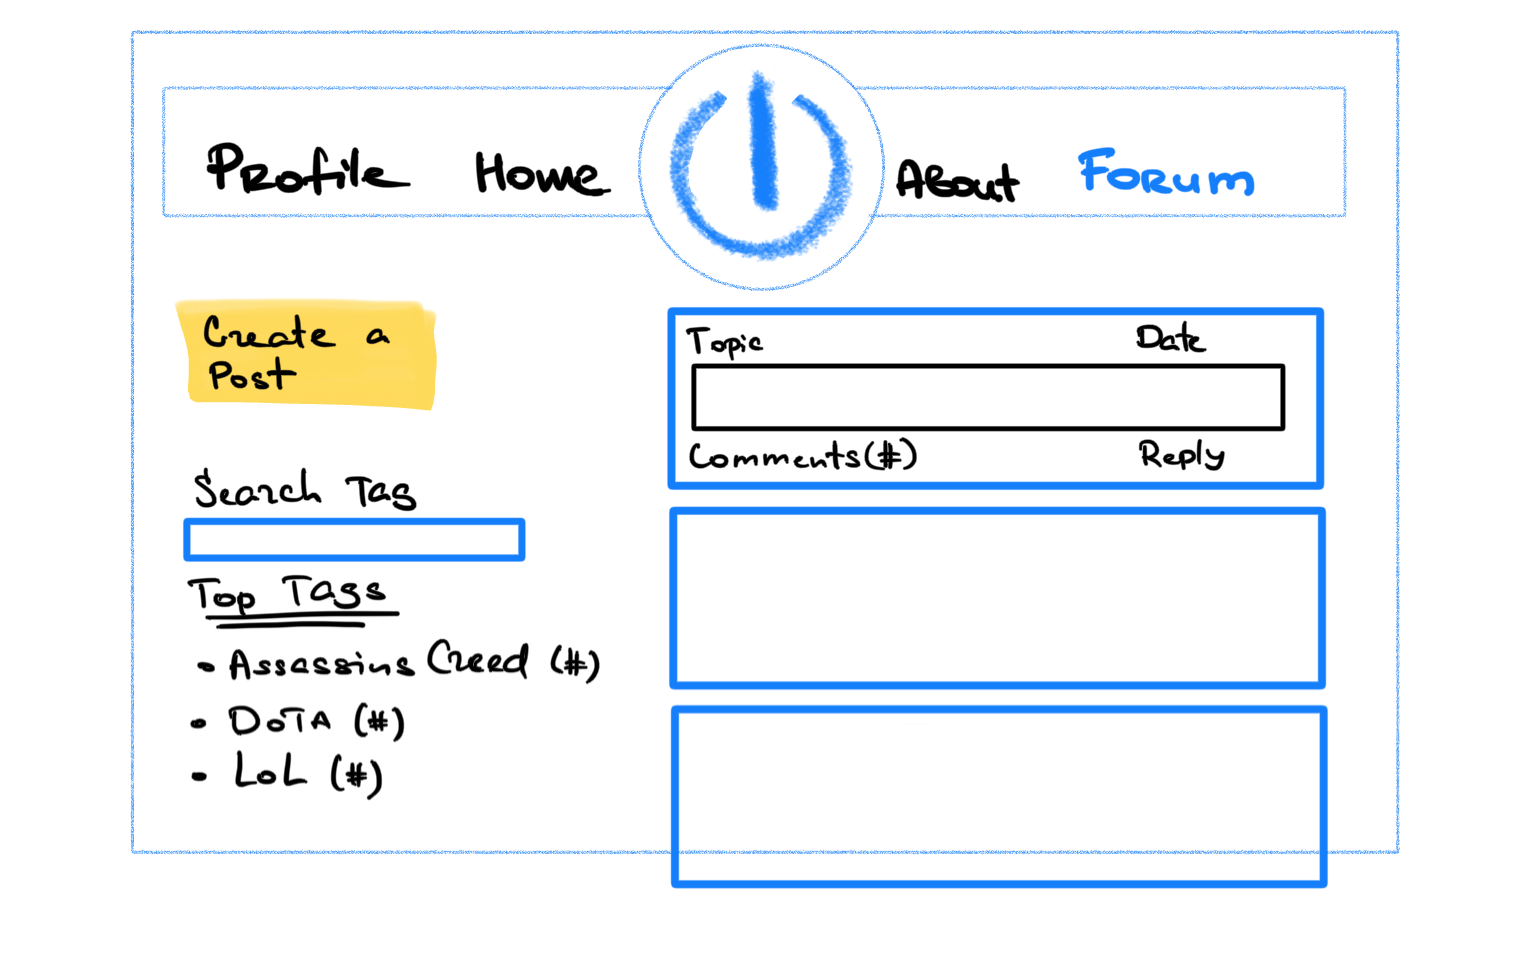 Profile Home About Forum
Create a
Post
Search Tag
Top Tags
- Assassins Creed (#)
- DoTA (#)
- LoL (#)
Topic Date
Comments(#) Reply